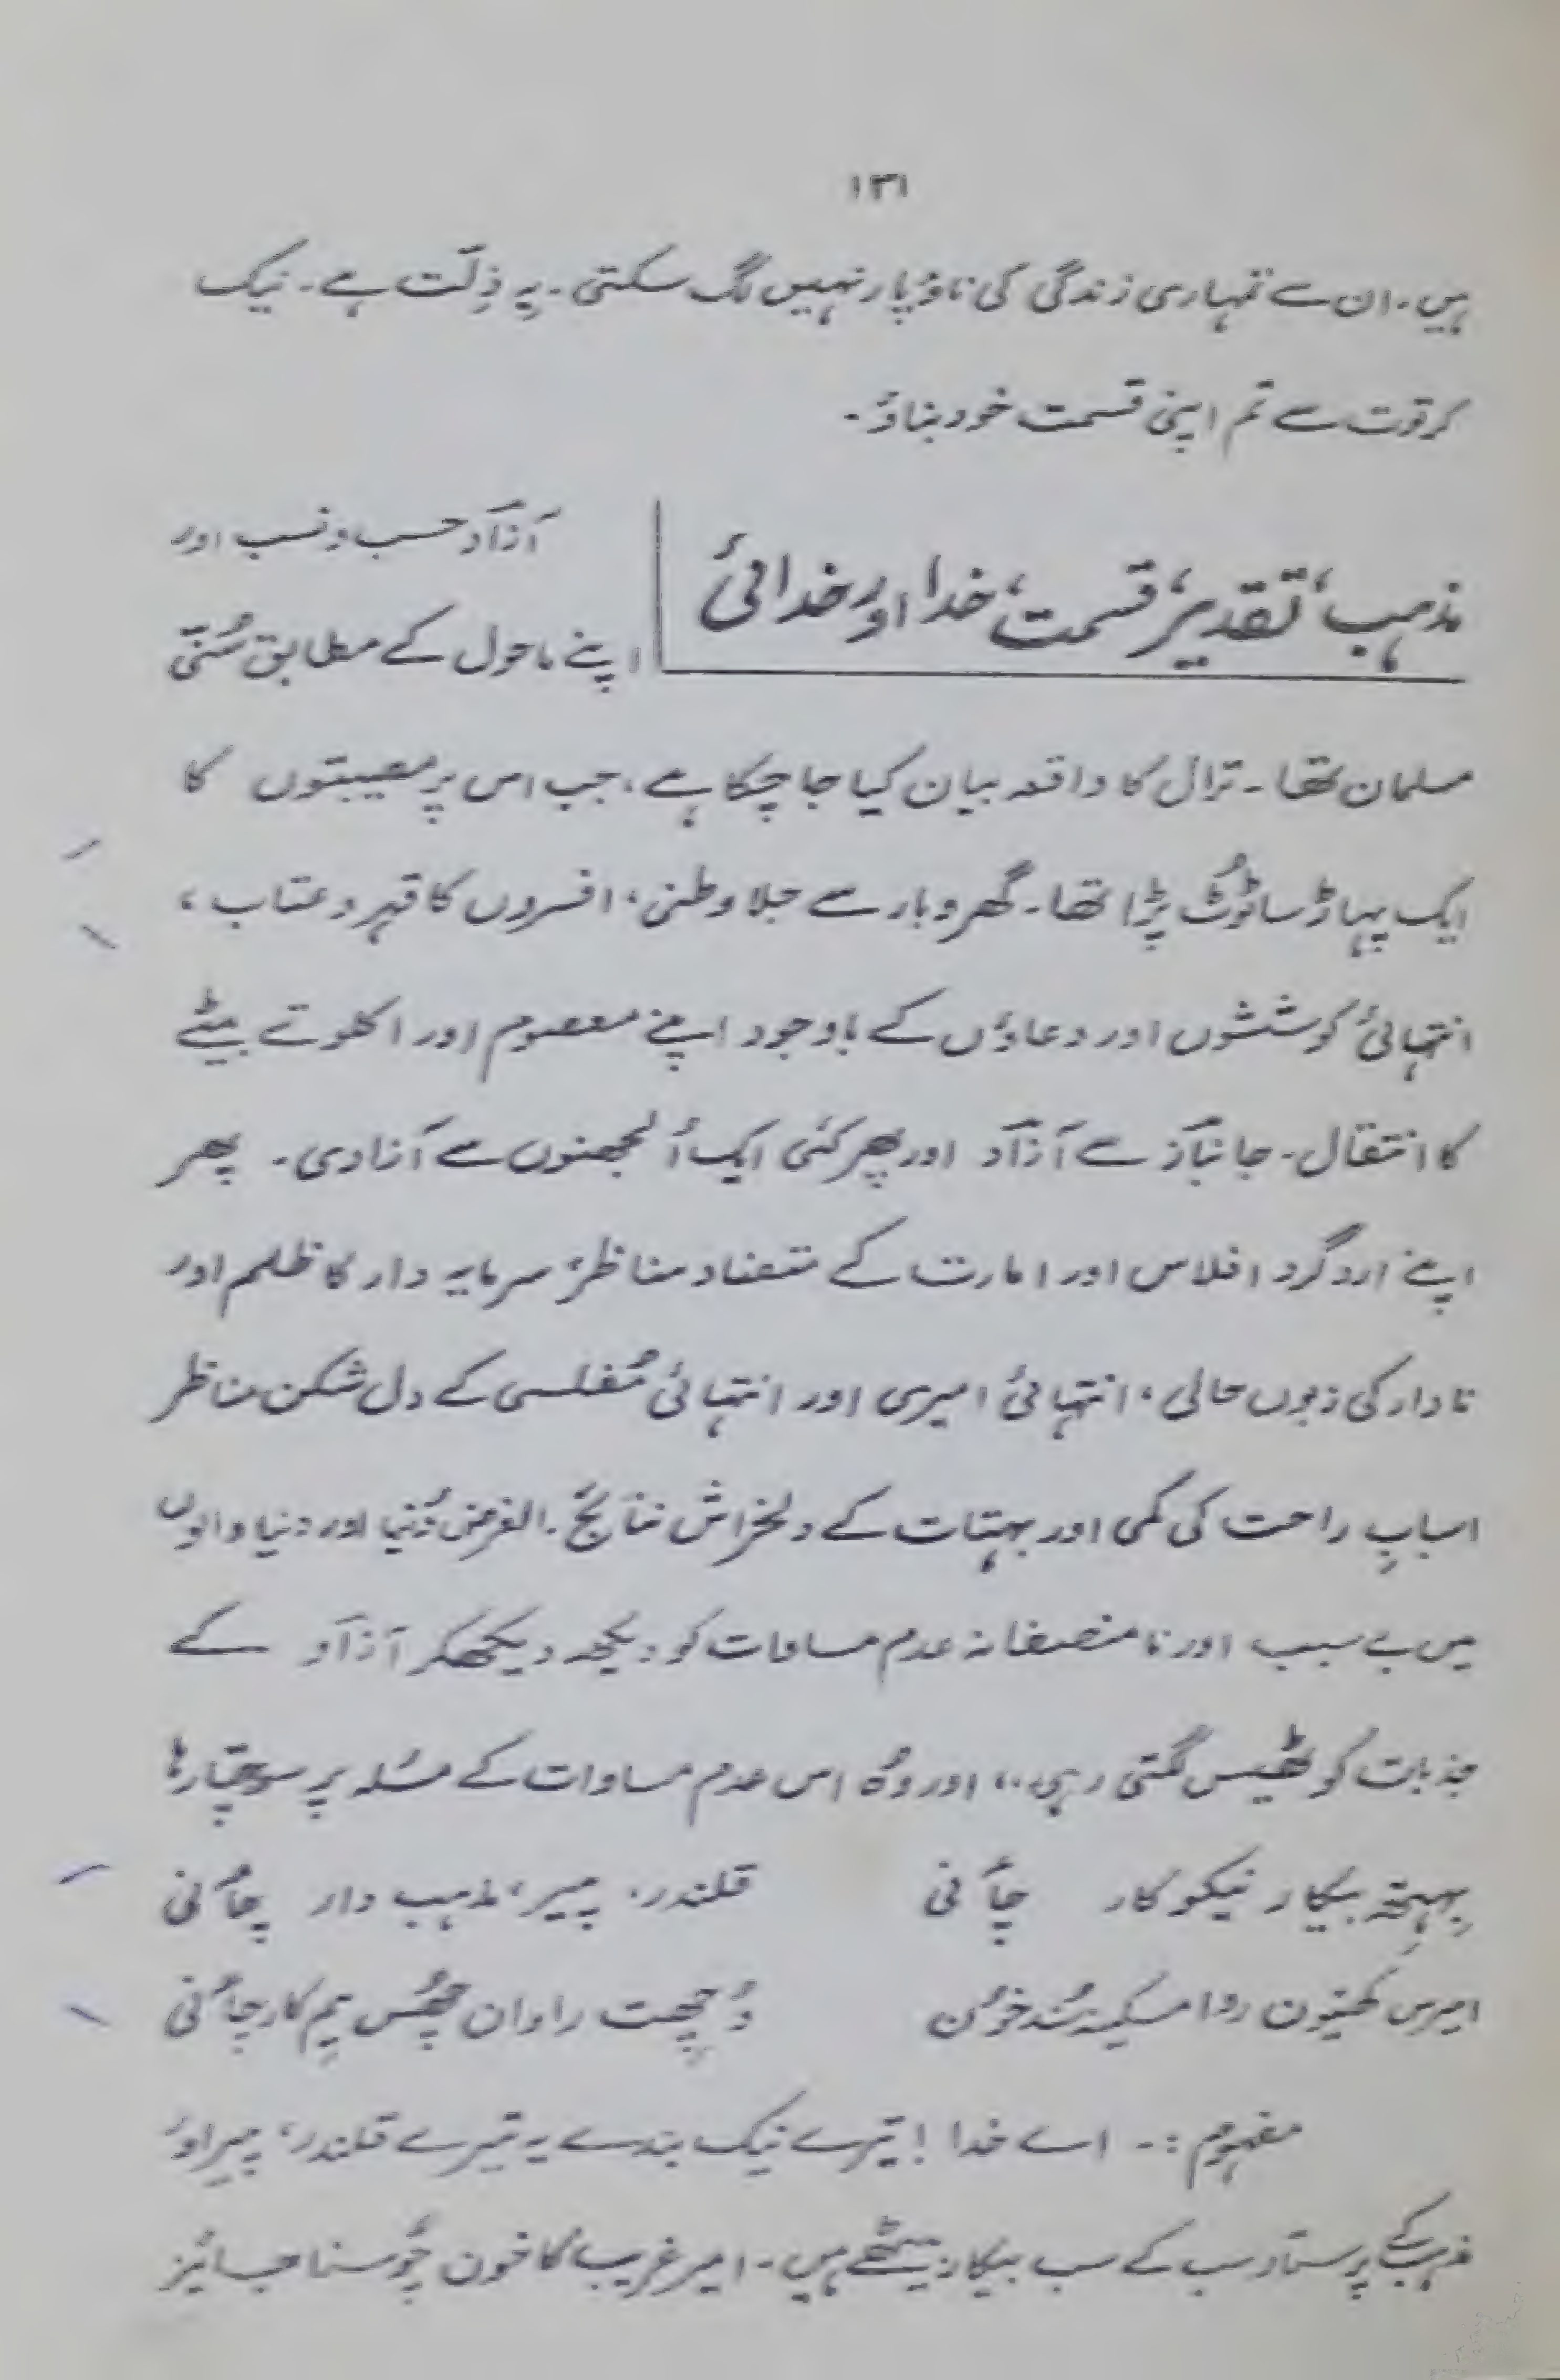 ۱۳۱
ہیں۔ ان سے تمہاری زندگی کی ناؤ پار نہیں لگ سکتی۔ یہ ذِلّت ہے۔ نیک
کرتوت سے تم اپنی قسمت خود بناؤ۔
مذہب، تقدیر، قسمت، خدا اور خدائی
آزاد حسب و نسب اور
اپنے ماحول کے مطابق سُنّی
مسلمان تھا۔ ترال کا واقعہ بیان کیا جا چکا ہے، جب اس پر مصیبتوں کا
ایک پہاڑ سا ٹوُٹ پڑا تھا۔ گھر وبار سے جلا وطنی، افسروں کا قہر و عتاب،
انتہائی کوششوں اور دعاؤں کے باوجود اپنے معصوم اور اکلوتے بیٹے
کا انتقال۔ جانبآز سے آزآد اور پھر کئی ایک اُلجھنوں سے آزادی۔ پھر
اپنے اردگرد افلاس اور امارت کے متضاد مناظر، سرمایہ دار کا ظلم اور
نادار کی زبوں حالی، انتہائی امیری اور انتہائی مُفلسی کے دل شکن مناظر
اسبابِ راحت کی کمی اور بہتات کے دلخراش نتائج۔ الغرض دُنیا اور دنیا والوں
میں بے سبب اور نا منصفانہ عدم مساوات کو دیکھ دیکھکر آزآد کے
جذبات کو ٹھیس لگتی رہی،، اور وُہ اس عدم مساوات کے مسٔلہ پر سوچتا رہا
بِہتھ بیکار نیکو کار چأنی قلندر، پیر، مذہب دار چأنی
امیرس کھیون روا مسکینہ سُند خوُن وُچھِت راوان چھُس یِم کار چأنی
مفہوم :۔ اے خدا ! تیرے نیک بندے یہ تیرے قلندر، پیر اور
مذہب کے پرستار سب کے سب بیکار بیٹھے ہیں۔ امیر غریب کا خون چُوسنا جائز